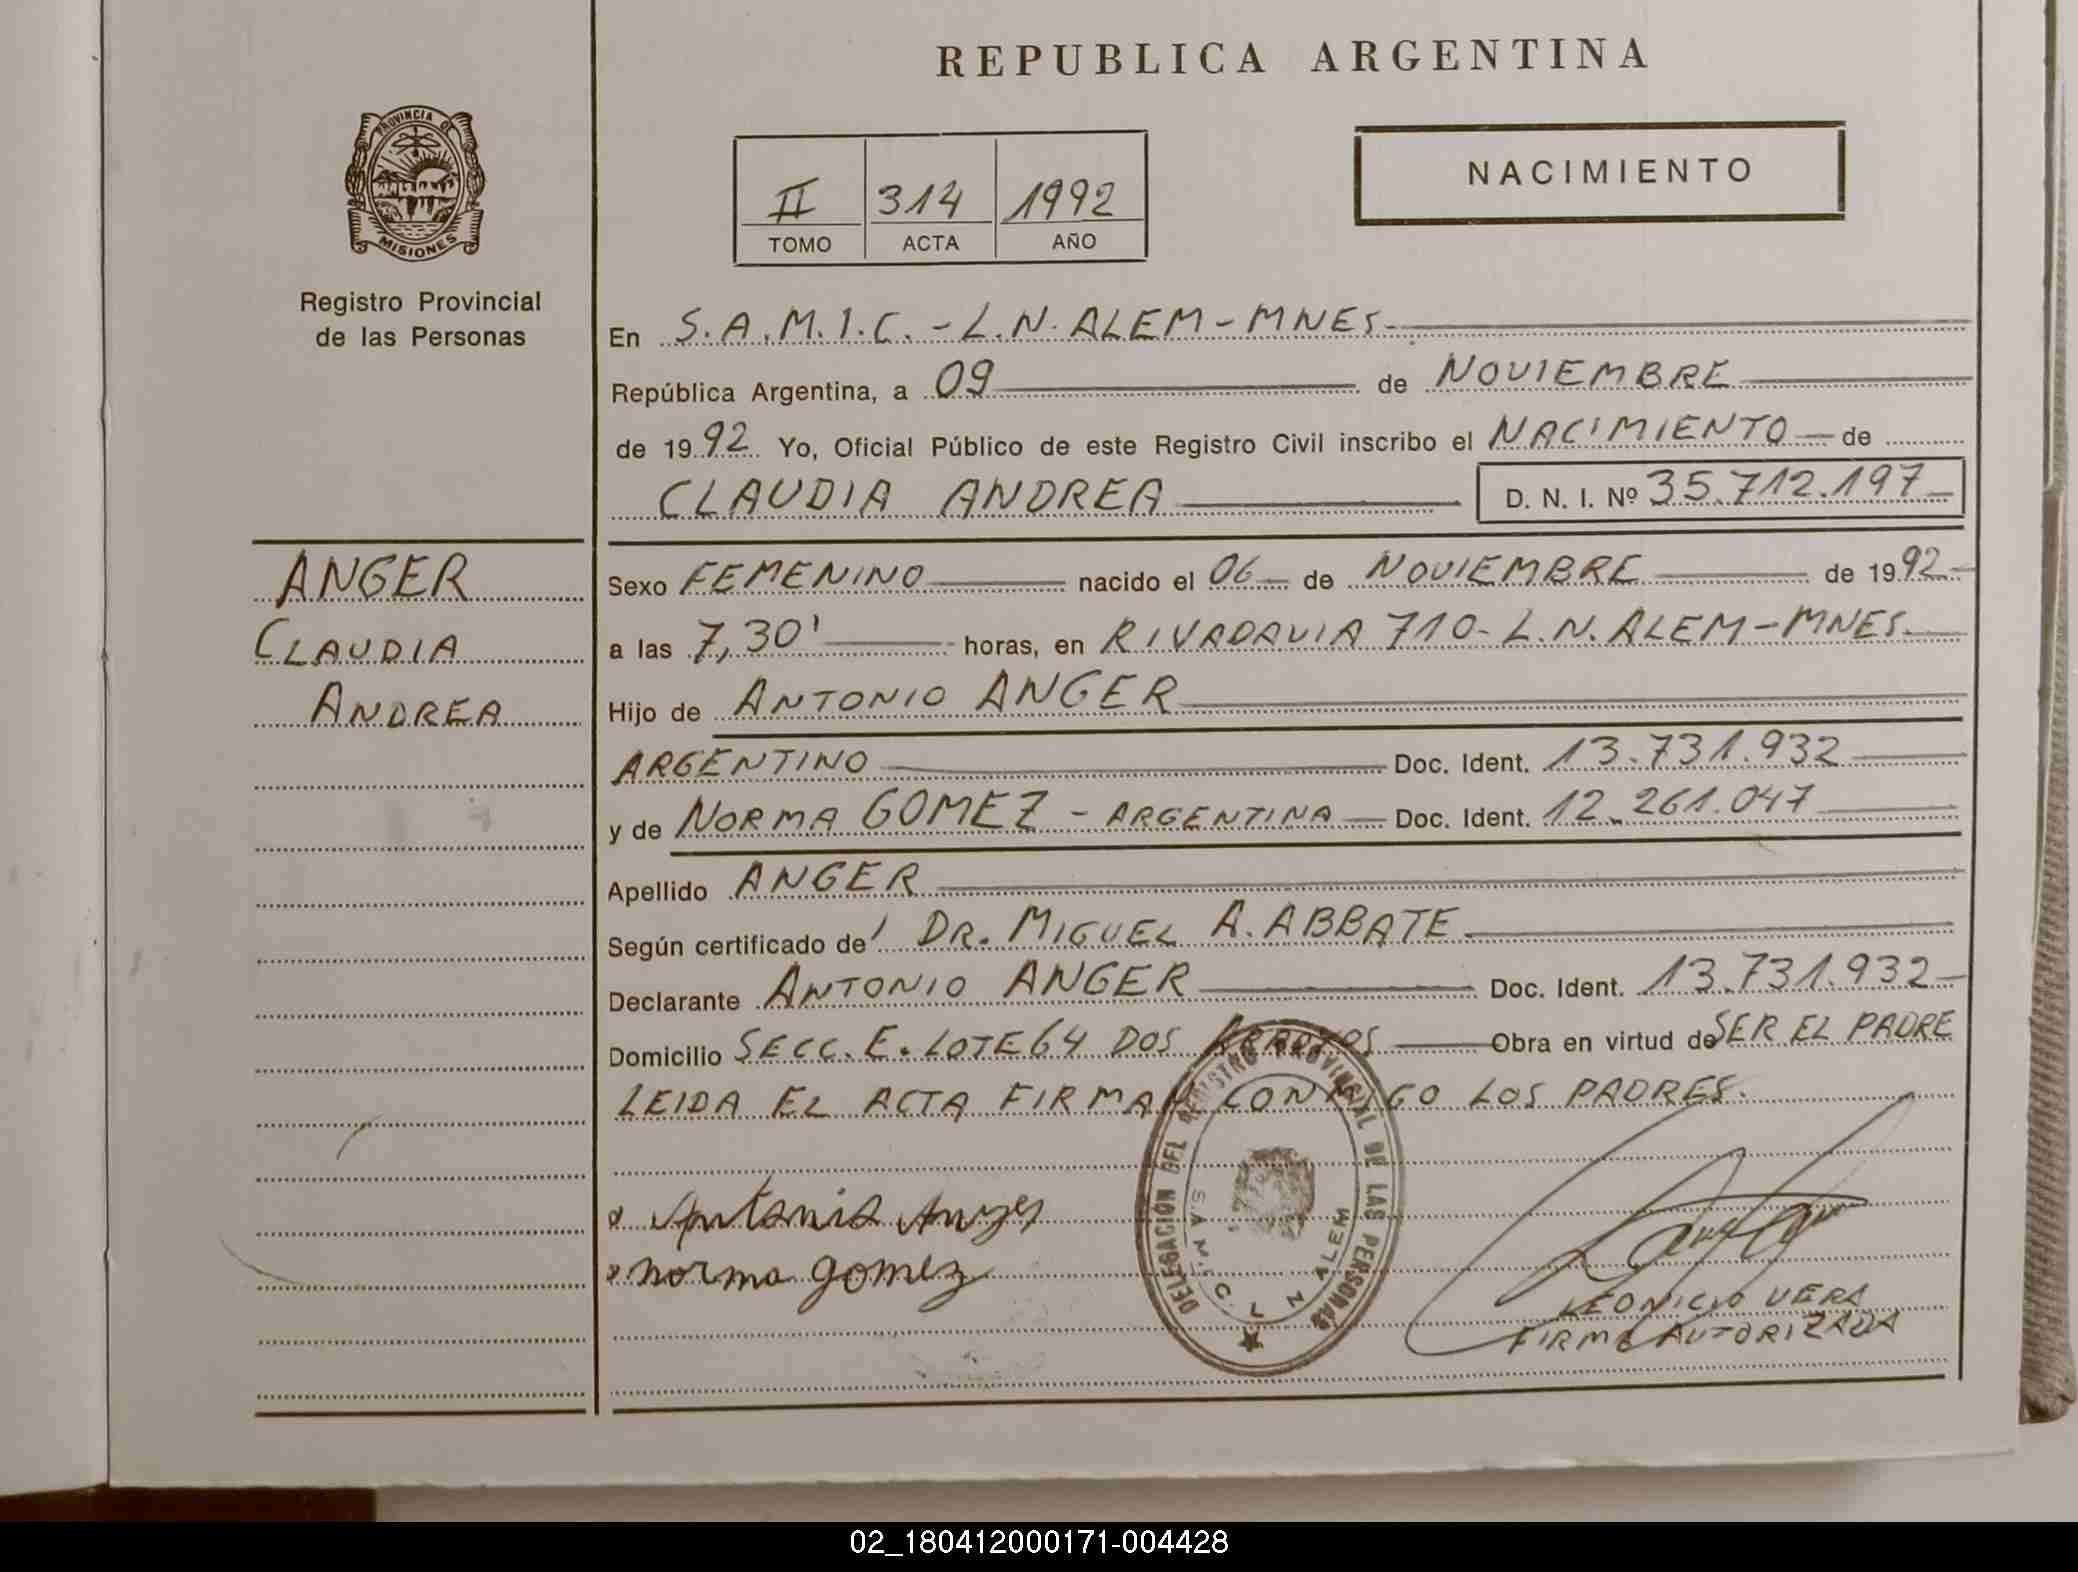 REPUBLICA ARGENTINA
PROVINCIA DE
MISIONES
Registro Provincial
de las Personas
II 314 1992
TOMO ACTA AÑO
NACIMIENTO
En S.A.M.I.C. - L.N. ALEM - MNES.
República Argentina, a 09 de NOVIEMBRE
de 1992 Yo, Oficial Público de este Registro Civil inscribo el NACIMIENTO de
CLAUDIA ANDREA D. N. I. Nº 35.712.197
ANGER
CLAUDIA
ANDREA
Sexo FEMENINO nacido el 06 de NOVIEMBRE de 1992
a las 7,30' horas, en RIVADAVIA 710 - L.N. ALEM - MNES.
Hijo de ANTONIO ANGER
ARGENTINO Doc. Ident. 13.731.932
y de NORMA GOMEZ - ARGENTINA Doc. Ident. 12.261.047
Apellido ANGER
Según certificado de DR. MIGUEL A. ABBATE
Declarante ANTONIO ANGER Doc. Ident. 13.731.932
Domicilio SECC. E. LOTE 64 DOS ARROYOS Obra en virtud de SER EL PADRE
LEIDA EL ACTA FIRMAN CONMIGO LOS PADRES.
DELEGACION DEL REGISTRO PROVINCIAL DE LAS PERSONAS
S.A.M.I.C. L N ALEM
Antonio Anger
norma gomez
LEONICIO VERA
FIRMA AUTORIZADA
02_180412000171-004428